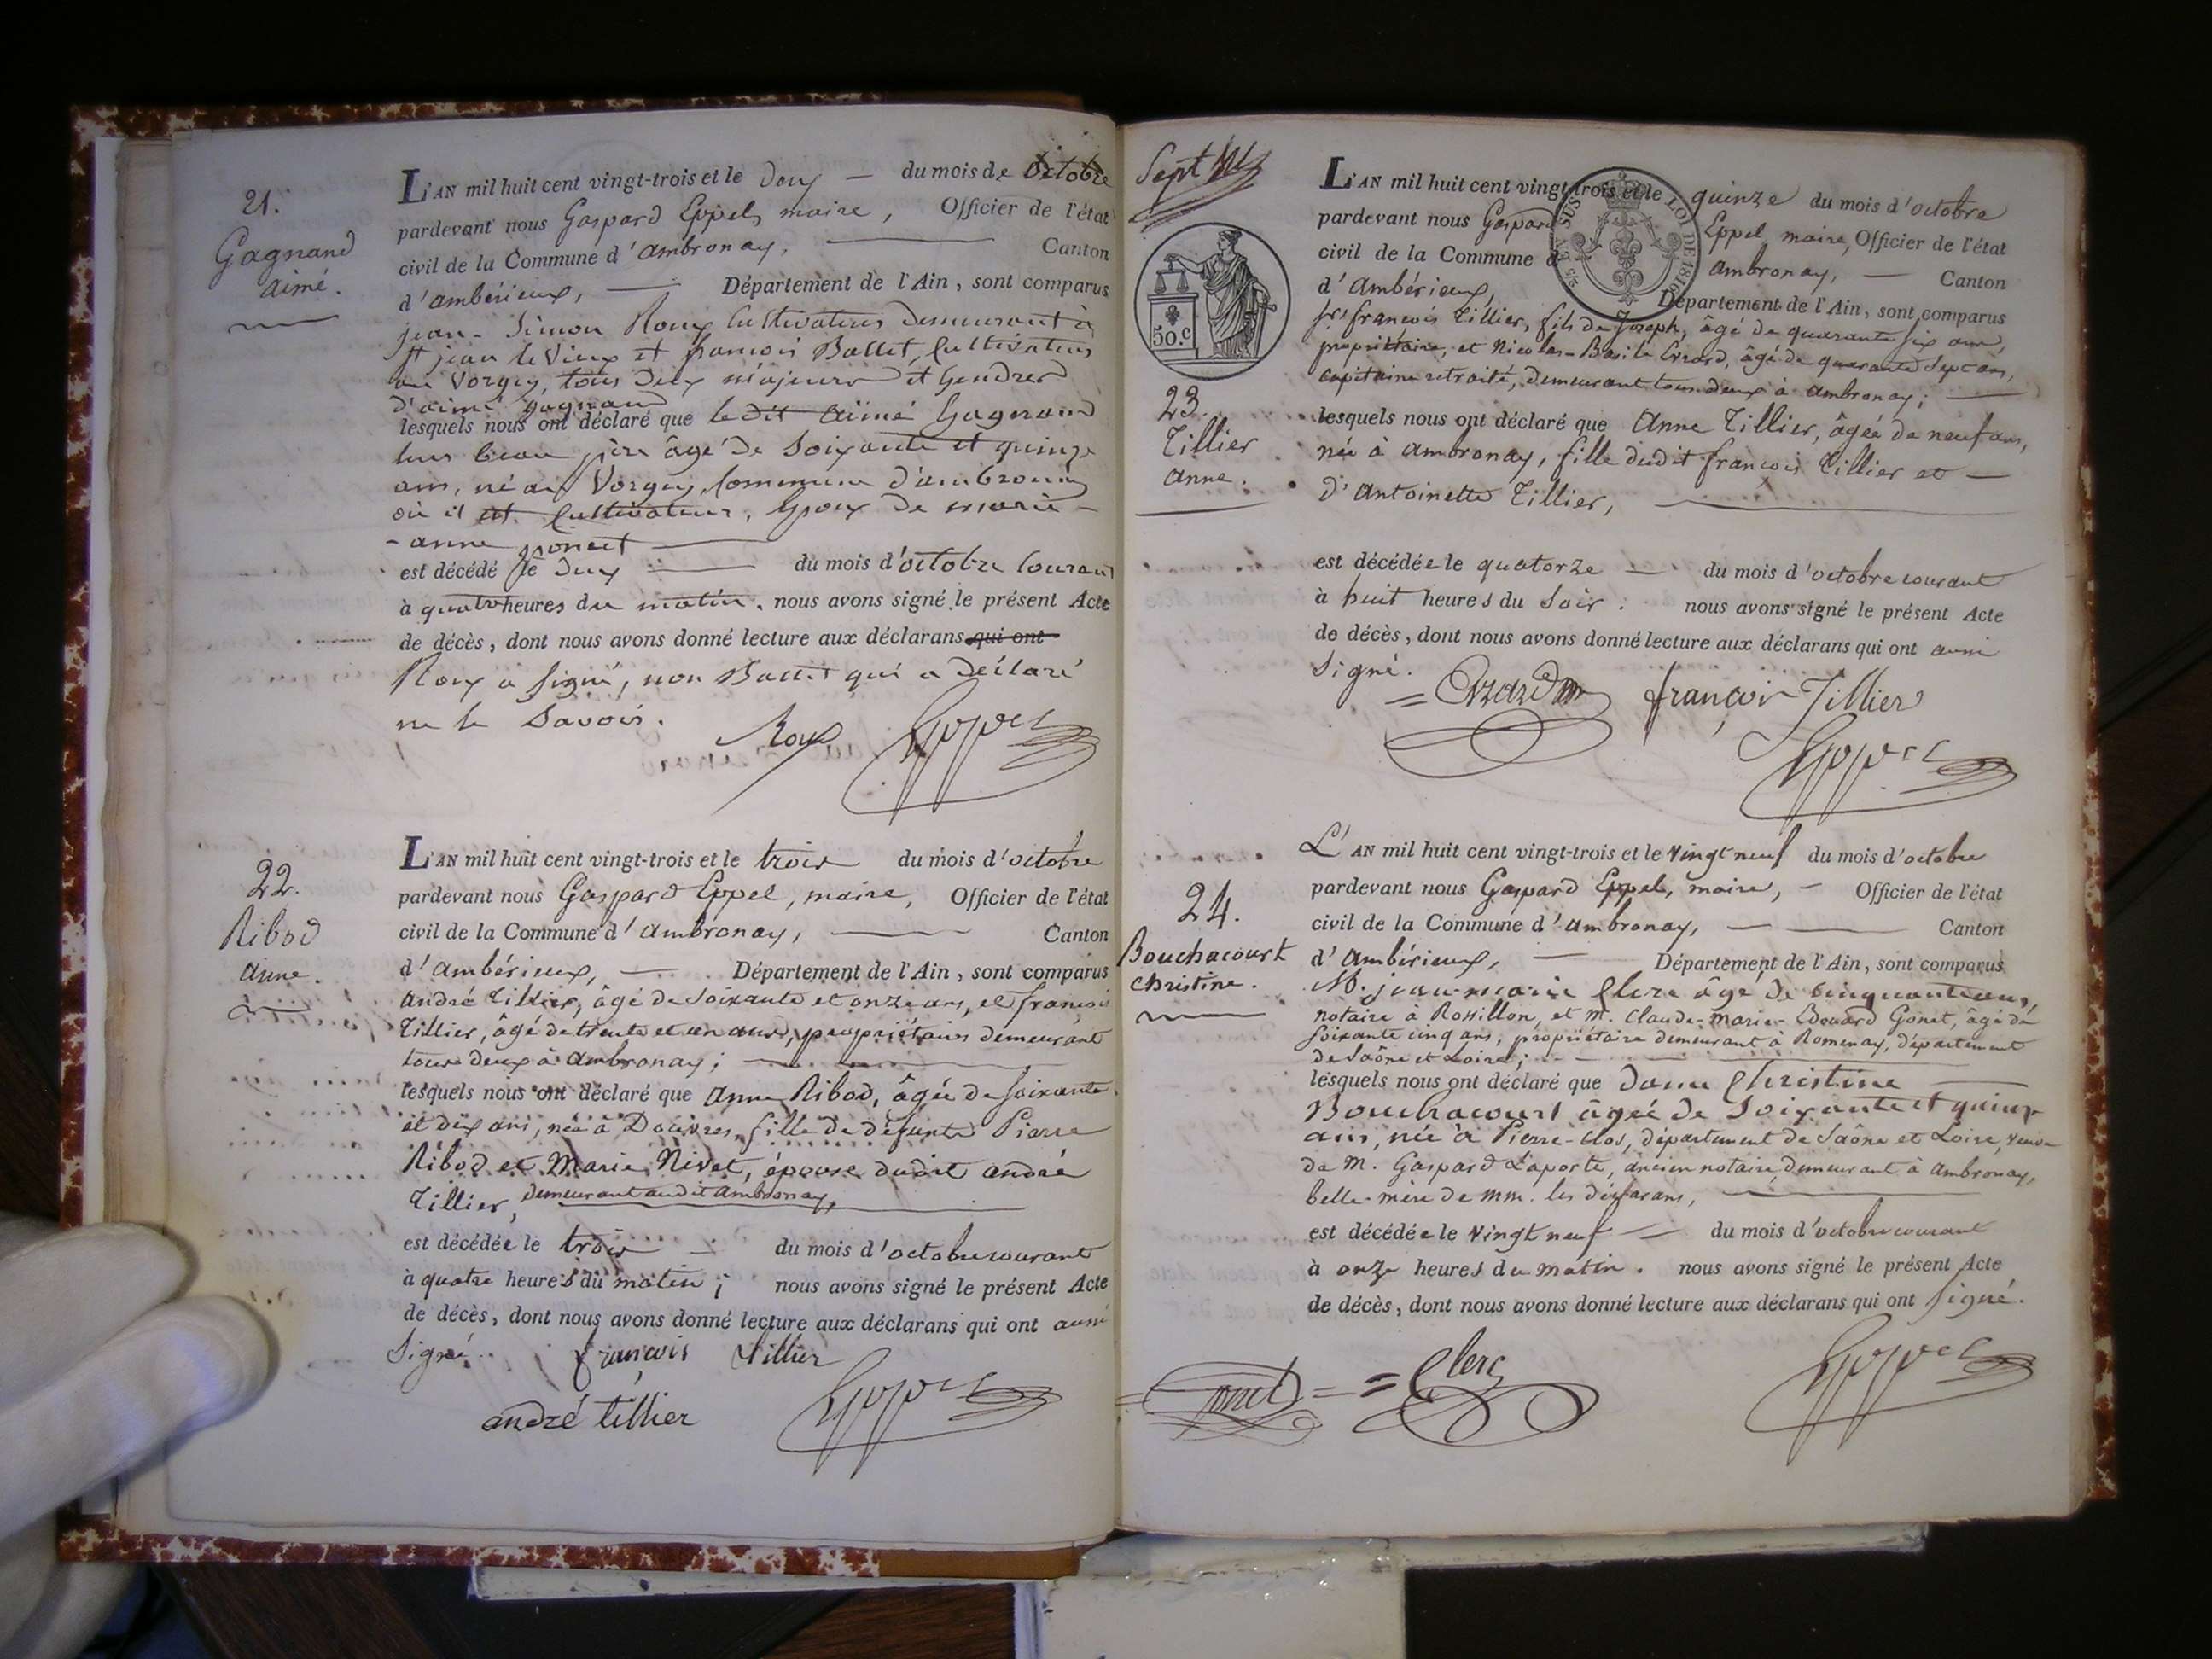 21.
Gagnand
aimé.
L'AN mil huit cent vingt-trois et le deux — du mois de octobre
pardevant nous Gaspard Eppel, maire, Officier de l'état
civil de la Commune d'ambronay, Canton
d'ambérieux, — Département de l'Ain, sont comparus
jean-Simon Roux Cultivateur demeurant à
St jean le Vieux et francois Ballet, Cultivateur
au Vorgey, tous deux majeurs et Gendres
d'aimé gagnand
lesquels nous ont déclaré que ledit Aimé Gagnand
leur beau père âgé de Soixante et quinze
ans, né au Vorgey, Commune d'ambronay
où il est Cultivateur, Epoux de marie-
-anne poncet —
est décédé le deux — du mois d'octobre Courant
à quatre heures du matin. nous avons signé le présent Acte
de décès, dont nous avons donné lecture aux déclarans qui ont
Roux a signé, non Ballet qui a déclaré
ne le Savoir.
Roux Eppel
22.
Ribod
anne.
L'AN mil huit cent vingt-trois et le trois du mois d'octobre
pardevant nous Gaspard Eppel, maire, Officier de l'état
civil de la Commune d'ambronay, — Canton
d'ambérieux, — Département de l'Ain, sont comparus
andré Tillier, âgé de Soixante et onze ans, et francois
Tillier, âgé de trente et un ans, propriétaires demeurant
tous deux à ambronay; —
lesquels nous ont déclaré que Anne Ribod, âgée de soixante
et dix ans, née à Douvres, fille de défunts Pierre
Ribod et Marie Nivet, épouse dudit andré
Tillier, demeurant audit ambronay,
est décédée le trois — du mois d'octobre courant
à quatre heures du matin; nous avons signé le présent Acte
de décès, dont nous avons donné lecture aux déclarans qui ont aussi
Signé. françois Tillier
andré tillier Eppel
Sept
50.c
TIMB. SUS. LOI DE 1816
23.
Tillier
anne.
L'AN mil huit cent vingt-trois et le quinze du mois d'octobre
pardevant nous Gaspard Eppel maire, Officier de l'état
civil de la Commune d'ambronay, — Canton
d'Ambérieux, Département de l'Ain, sont comparus
srs francois Tillier, fils de Joseph, âgé de quarante six ans,
propriétaire, et Nicolas-Basile Evrard, âgé de quarante Sept ans,
capitaine retraité, demeurant tous deux à ambronay; —
lesquels nous ont déclaré que Anne Tillier, âgée de neuf ans,
née à ambronay, fille dudit françois Tillier et —
d'Antoinette Tillier, —
est décédée le quatorze — du mois d'octobre courant
à huit heures du Soir: nous avons signé le présent Acte
de décès, dont nous avons donné lecture aux déclarans qui ont aussi
Signé.
françois Tillier
Eppel
24.
Bouchacourt
christine.
L'AN mil huit cent vingt-trois et le vingt neuf du mois d'octobre
pardevant nous Gaspard Eppel, maire, — Officier de l'état
civil de la Commune d'ambronay, — Canton
d'ambérieux, — Département de l'Ain, sont comparus
M. jean-marie Clerc âgé de cinquante ans,
notaire à Rossillon, et m. Claude-Marie-Edouard Gonet, âgé de
soixante cinq ans, propriétaire demeurant à Romenay, département
de Saône et Loire; —
lesquels nous ont déclaré que dame Christine —
Bouchacourt âgée de Soixante et quinze
ans, née à Pierre-Clos, département de Saône et Loire, veuve
de M. Gaspard Laporte, ancien notaire, demeurant à ambronay,
belle-mère de mm. les déclarans, —
est décédée le vingt neuf — du mois d'octobre courant
à onze heures du matin. nous avons signé le présent Acte
de décès, dont nous avons donné lecture aux déclarans qui ont signé.
Gonet Clerc Eppel